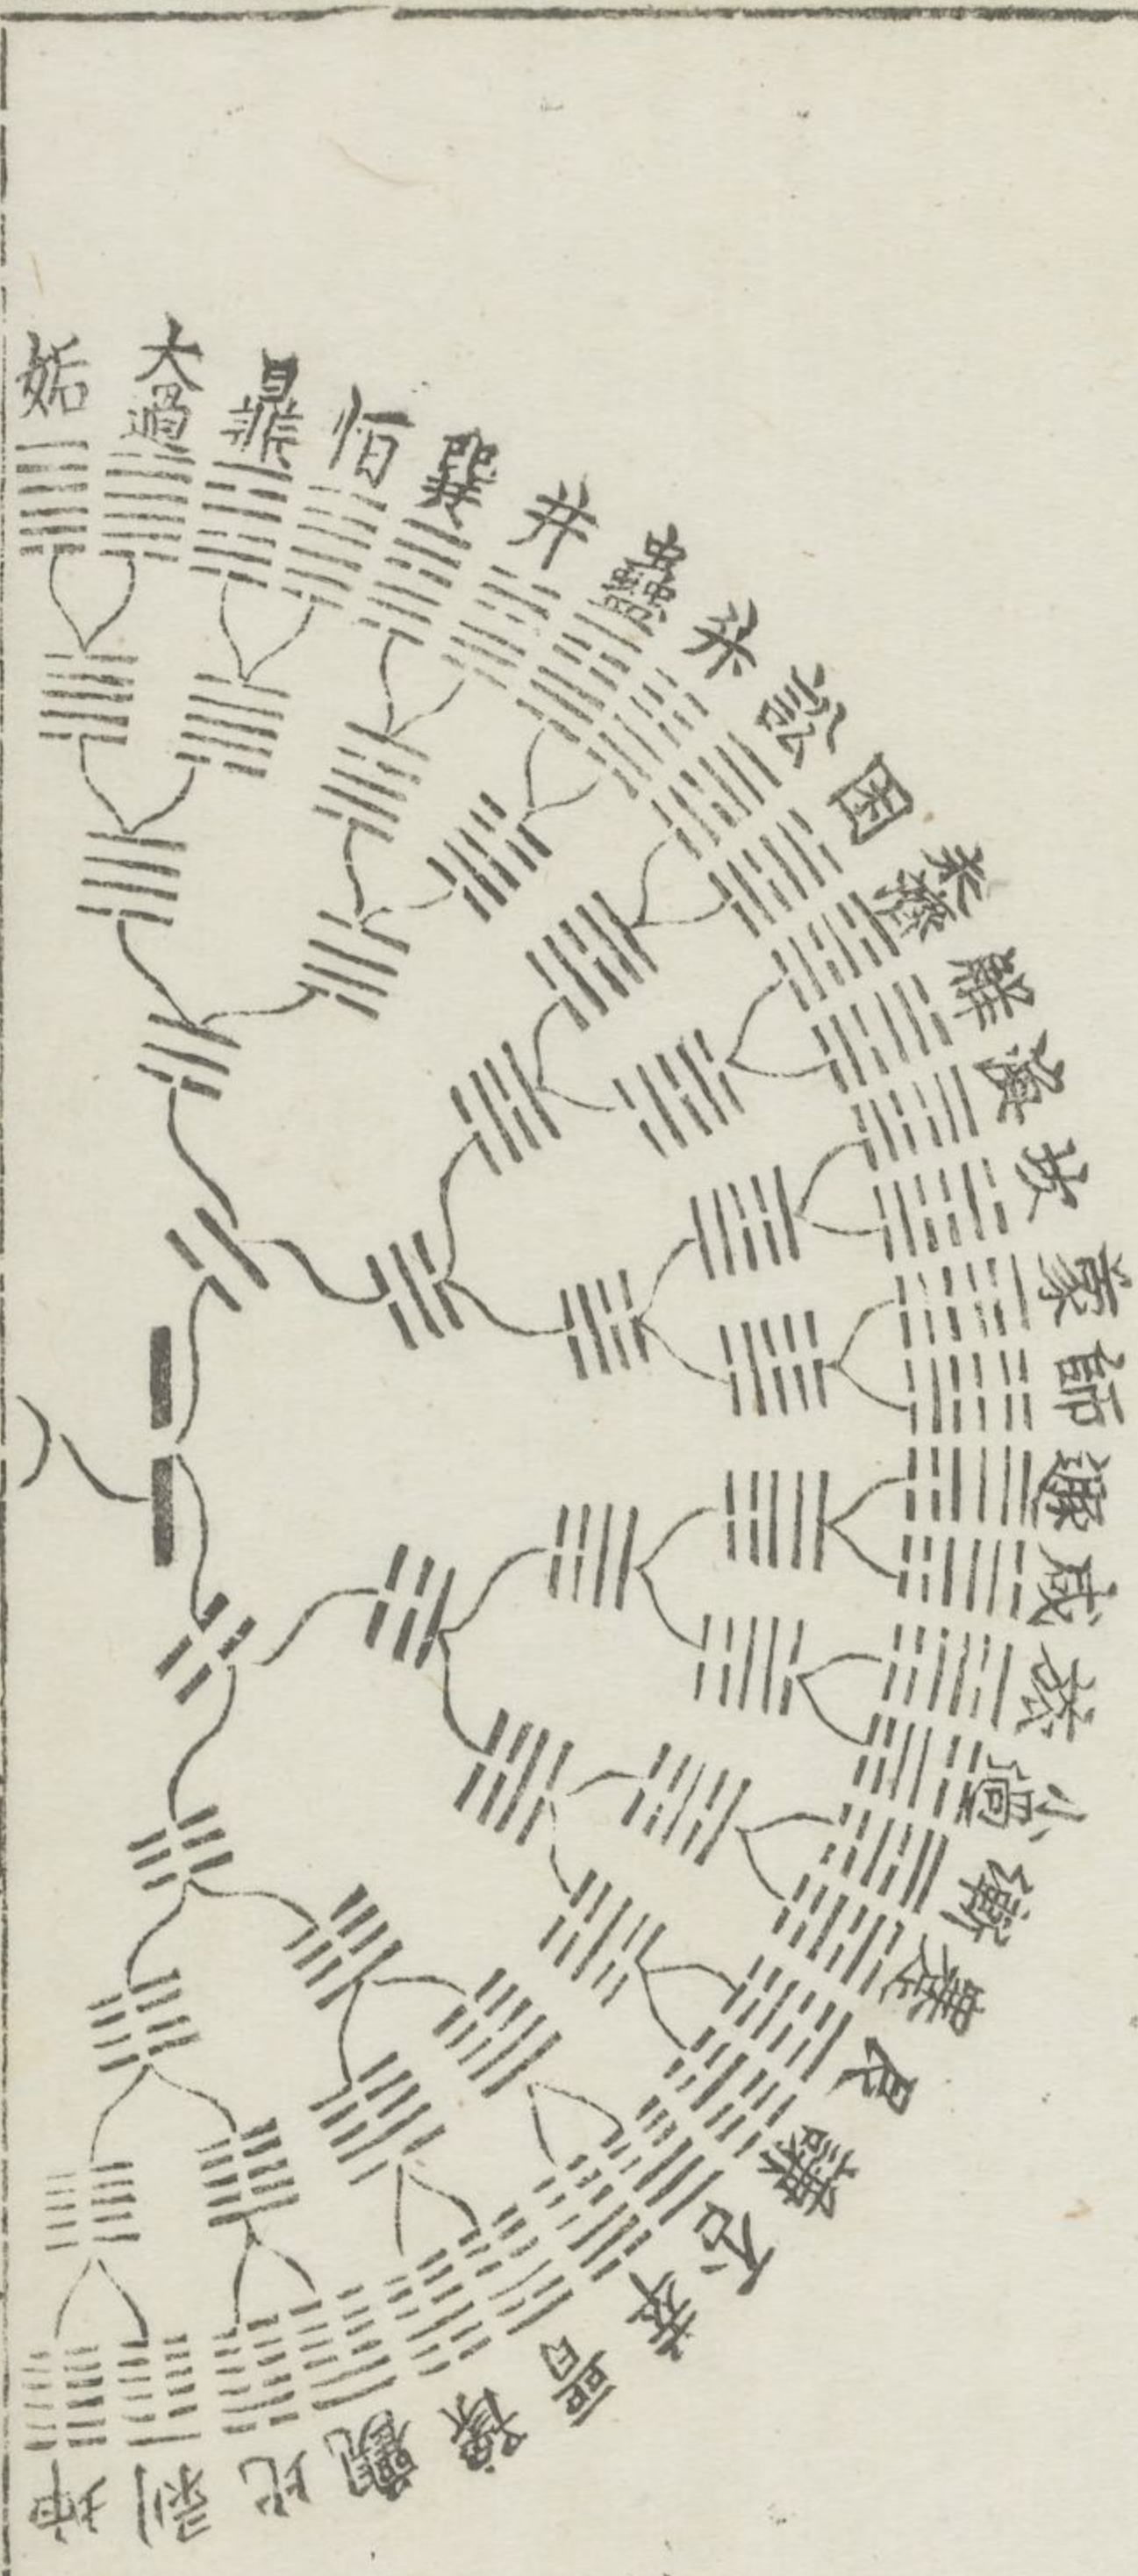 姤
大過
鼎
恒
巽
井
蠱
升
訟
困
未濟
解
渙
坎
蒙
師
遯
咸
旅
小過
漸
蹇
艮
謙
否
萃
晉
豫
觀
比
剥
坤